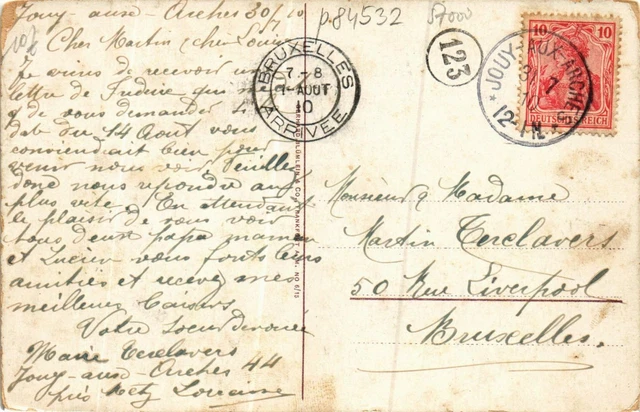 Jouy-aux-Arches 30/7 10
Cher Martin, cher Louise
Je viens de recevoir une
lettre de
de vous demander
date du 14 Août vous
conviendrait bien pour
venir nous voir Veuillez
donc nous répondre au
plus vite. En attendant
le plaisir de vous voir
tous deux papa maman
et Lucien vous font leurs
amitiés et recevez mes
meilleurs baisers
Votre Soeur dévouée
Marie Terclavers
Jouy-aux-Arches 44
près Metz Lorraine
p.84532
123
BRUXELLES
7-8
1-AOUT
10
ARRIVÉE
10 10
DEUTSCHES REICH
JOUY-AUX-ARCHES
12-1N
NO 6/10
Monsieur & Madame
Martin Terclavers
50 Rue Liverpool
Bruxelles.